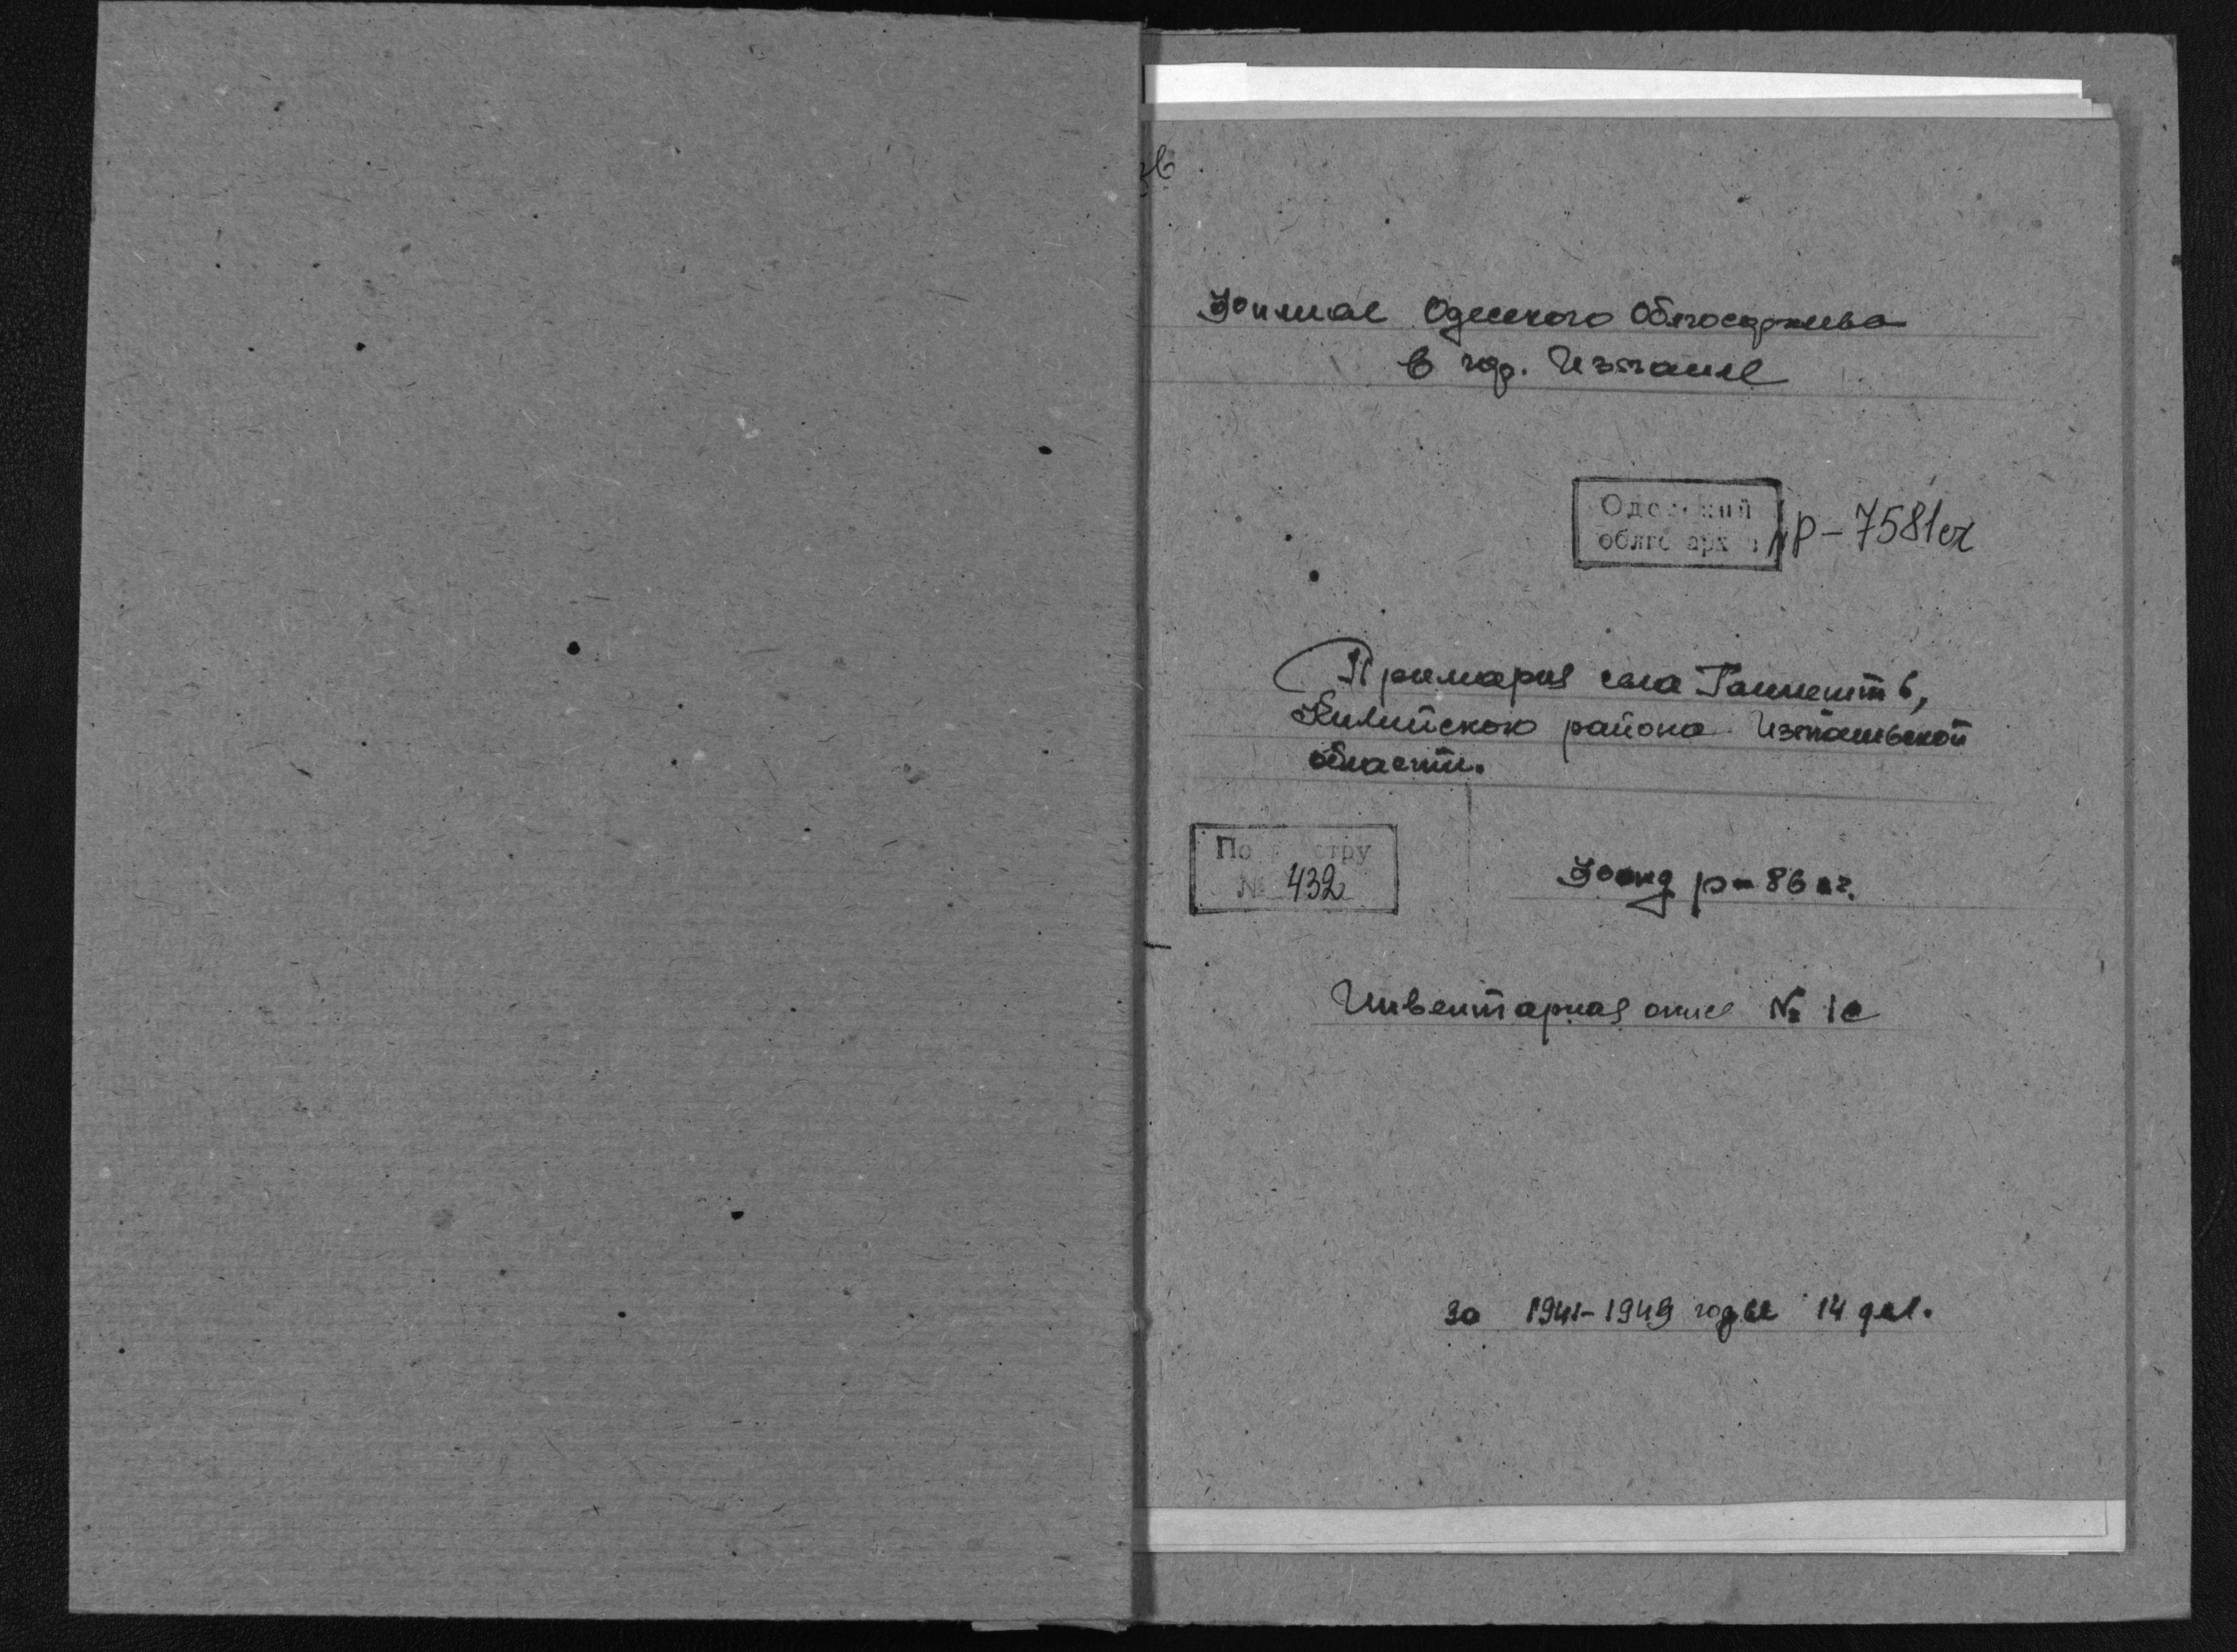 Филиал Одесского Облгосархива
в гор. Измаиле
Одесский
облгосархив № р-7581
Примария села Ганнешть,
Килийского района Измаильской
области.
По реестру
№ 432
Фонд р-86
Инвентарная опись № 1с
за 1941-1949 годы 14 дел.